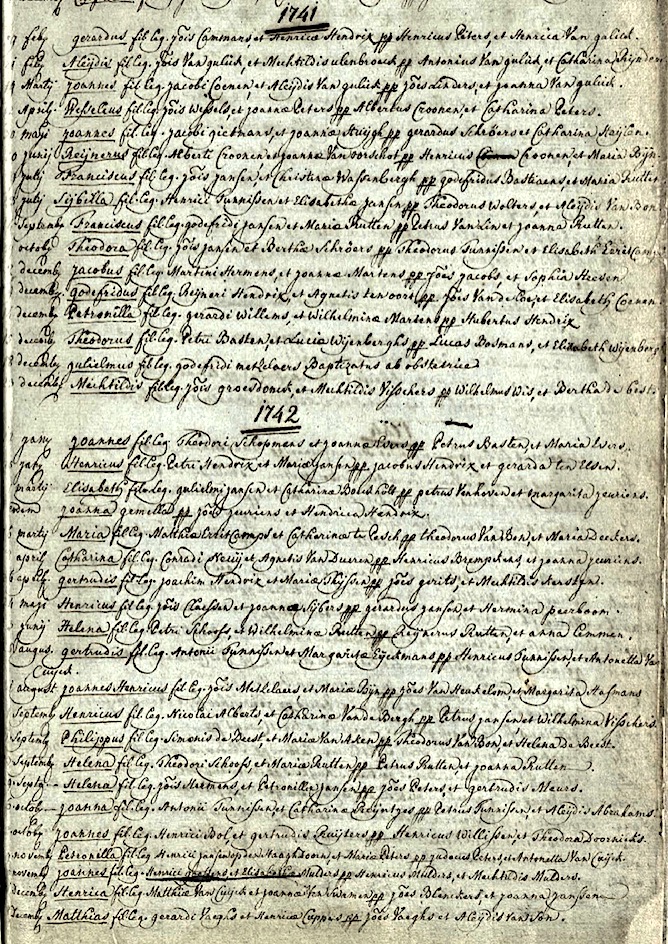 1741
feb gerardus fil. leg. Jois Cammans, et Henricæ Hendrix pp Henricus Peters, et Henrica Van gulick.
feb Aleijdis fil. leg. Jois Van gulick, et Mechtildis ulenbroeck pp Antonius Van gulick, et Catharina
Martij Joannes fil. leg. Jacobi Coenen et Aleijdis Van gulick pp Jois Linders, et Joanna Van gulick.
April Wesselus fil. leg. Jois Wessels, et Joannæ Peters pp Albertus Croonen, et Catharina Peters.
maij Joannes fil. leg. Jacobi gietmans, et Joannæ pp gerardus Schröers et Catharina
junij Reijnerus fil. leg. Alberti Croonen et Joannæ Van pp Henricus Croonen, et Maria Bijn
julij Franciscus fil. leg. Jois Jansen et Christinæ Wassenbergh pp godefridus Bastiaens, et Maria Rutten
july Sijbilla fil. leg. Henrici Tunnissen et Elisabethæ Jansen pp Theodorus Wolters et Aleijdis Van Bon
Septemb Franciscus fil. leg. godefridi Jansen et Mariæ Rutten pp Petrus et Joanna Rutten.
octob Theodora fil. leg. Jois Jansen et Berthæ Schröers pp Theodorus Tunnissen et Elisabeth
decemb Jacobus fil. leg. Martini Hermens, et Joannæ Martens pp Jões Jacobs, et Sophia Heesen
decemb godefridus fil. leg. Reijneri Hendrix, et Agnetis ten oort pp Jões Van de Loe, et Elisabeth Coenen
decemb Petronilla fil. leg. gerardi Willems, et Wilhelminæ Martens pp Hubertus Hendrix
decemb Theodorus fil. leg. Petri Basten et Luciæ Wijenberghs pp Lucas Bosmans, et Elisabeth Wijenberg
decemb gulielmus fil. leg. godefridi metselaers Baptizatus ab obstetrice
decemb Mechtildis fil. leg. Jois groesdonck, et Mechtildis Visschers pp Wilhelmus Wis, et Bertha de best.
1742
jany Joannes fil. leg. Theodori Schopmens et Joannæ Evers pp Petrus Basten, et Maria Evers.
jany Henricus fil. leg. Petri Hendrix et Mariæ Jansen pp Jacobus Hendrix et gerarda ten Elsen.
martij Elisabeth fil. leg. gulielmi Jansen et Catharinæ pp petrus Venhoven et margarita Jeuriens.
Joanna gemella pp Jões Jeuriens et Hendrica Hendrix.
martij Maria fil. leg. Matthiæ et Catharinæ te Pasch pp theodorus Van Bon, et Maria Deckers.
april Catharina fil. leg. Conradi et Agnetis Van Dueren pp Henricus et Joanna Jeuriens.
april gertrudis fil. leg. Joachim Hendrix et Mariæ Thijssen pp Jões gerits, et Mechtildis
maij Henricus fil. leg. Jois Claessen et Joannæ Sijbers pp gerardus Jansen et Hermina peerboom.
junij Helena fil. leg. Petri Schoofs et Wilhelminæ Rutten pp Reijnerus Rutten, et anna Lemmen.
augus. gertrudis fil. leg. Antonii Tunnissen et Margaritæ Eijckmans pp Henricus Tunnissen, et Antonetta Van
Cuijck.
august Joannes Henricus fil. leg. Jois Metselaers et Mariæ Bijn pp Jões Van Heukelom et Margarita Hasmans
Septemb Henricus fil. leg. Nicolai Alberts, et Catharinæ Van de Bergh, pp Petrus Jansen, et Wilhelmina Visschers.
Septemb Philippus fil. leg. Simonis de Beest, et Mariæ Van Aken pp Theodorus Van Bon, et Helena de Beest.
Septemb Helena fil. leg. Theodori Schoofs, et Mariæ Rutten pp Petrus Rutten, et Joanna Rutten.
Septb Helena fil. leg. Jois Hermens, et Petronillæ Jansen pp Jões Peters, et gertrudis Meurs.
octob Joanna fil. leg. Antonii Tunnissen, et Catharinæ Reijntjes pp Petrus Tunnissen, et Aleijdis Abrahams.
octob Joannes fil. leg. Henrici Bol, et gertrudis Ruijters pp Henricus Willissen, et Theodora Doornicks.
novemb Petronilla fil. leg. Henrici Jansen op den Haaghdoorn, et Mariæ Peters pp Judocus Peters, et Antonetta Van Cuijck
novemb Joannes fil. leg. Henrici et Elisabethæ Mulders pp Henricus Mulders, et Mechtildis Mulders.
decemb Henrica fil. leg. Matthiæ Van Cuijck et Joannæ Van pp Jões Blenckers, et Joanna Janssen
decemb Matthias fil. leg. gerardi Vaeghs et Henricæ Cuppers pp Jões Vaeghs et Aleijdis Van Son.